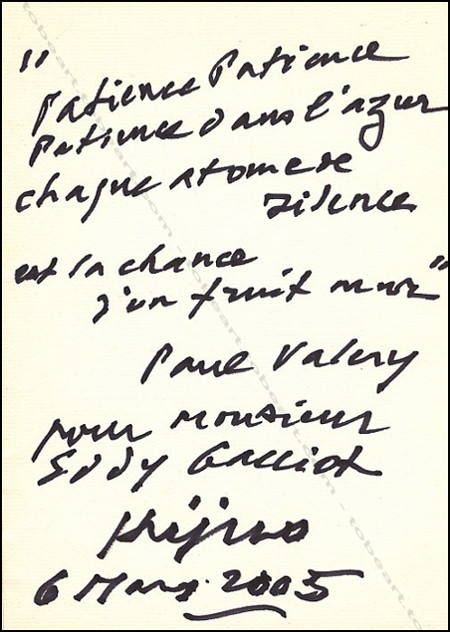 "
Patience Patience
Patience dans l'azur
chaque atome de
silence
est la chance
d'un fruit mur"
Paul Valery
pour monsieur
Eddy Galliot
Kijno
6 Mars 2005